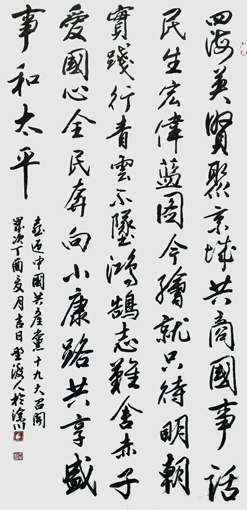 四海英贤聚京城共商國事话
民生宏偉蓝图今繪就只待明朝
實踐行青雲不墜鴻鵠志難舍赤子
爱國心全民奔向小康路共享盛
事和太平
喜迎中国共產黨十九大召開
歲次丁酉亥月吉日